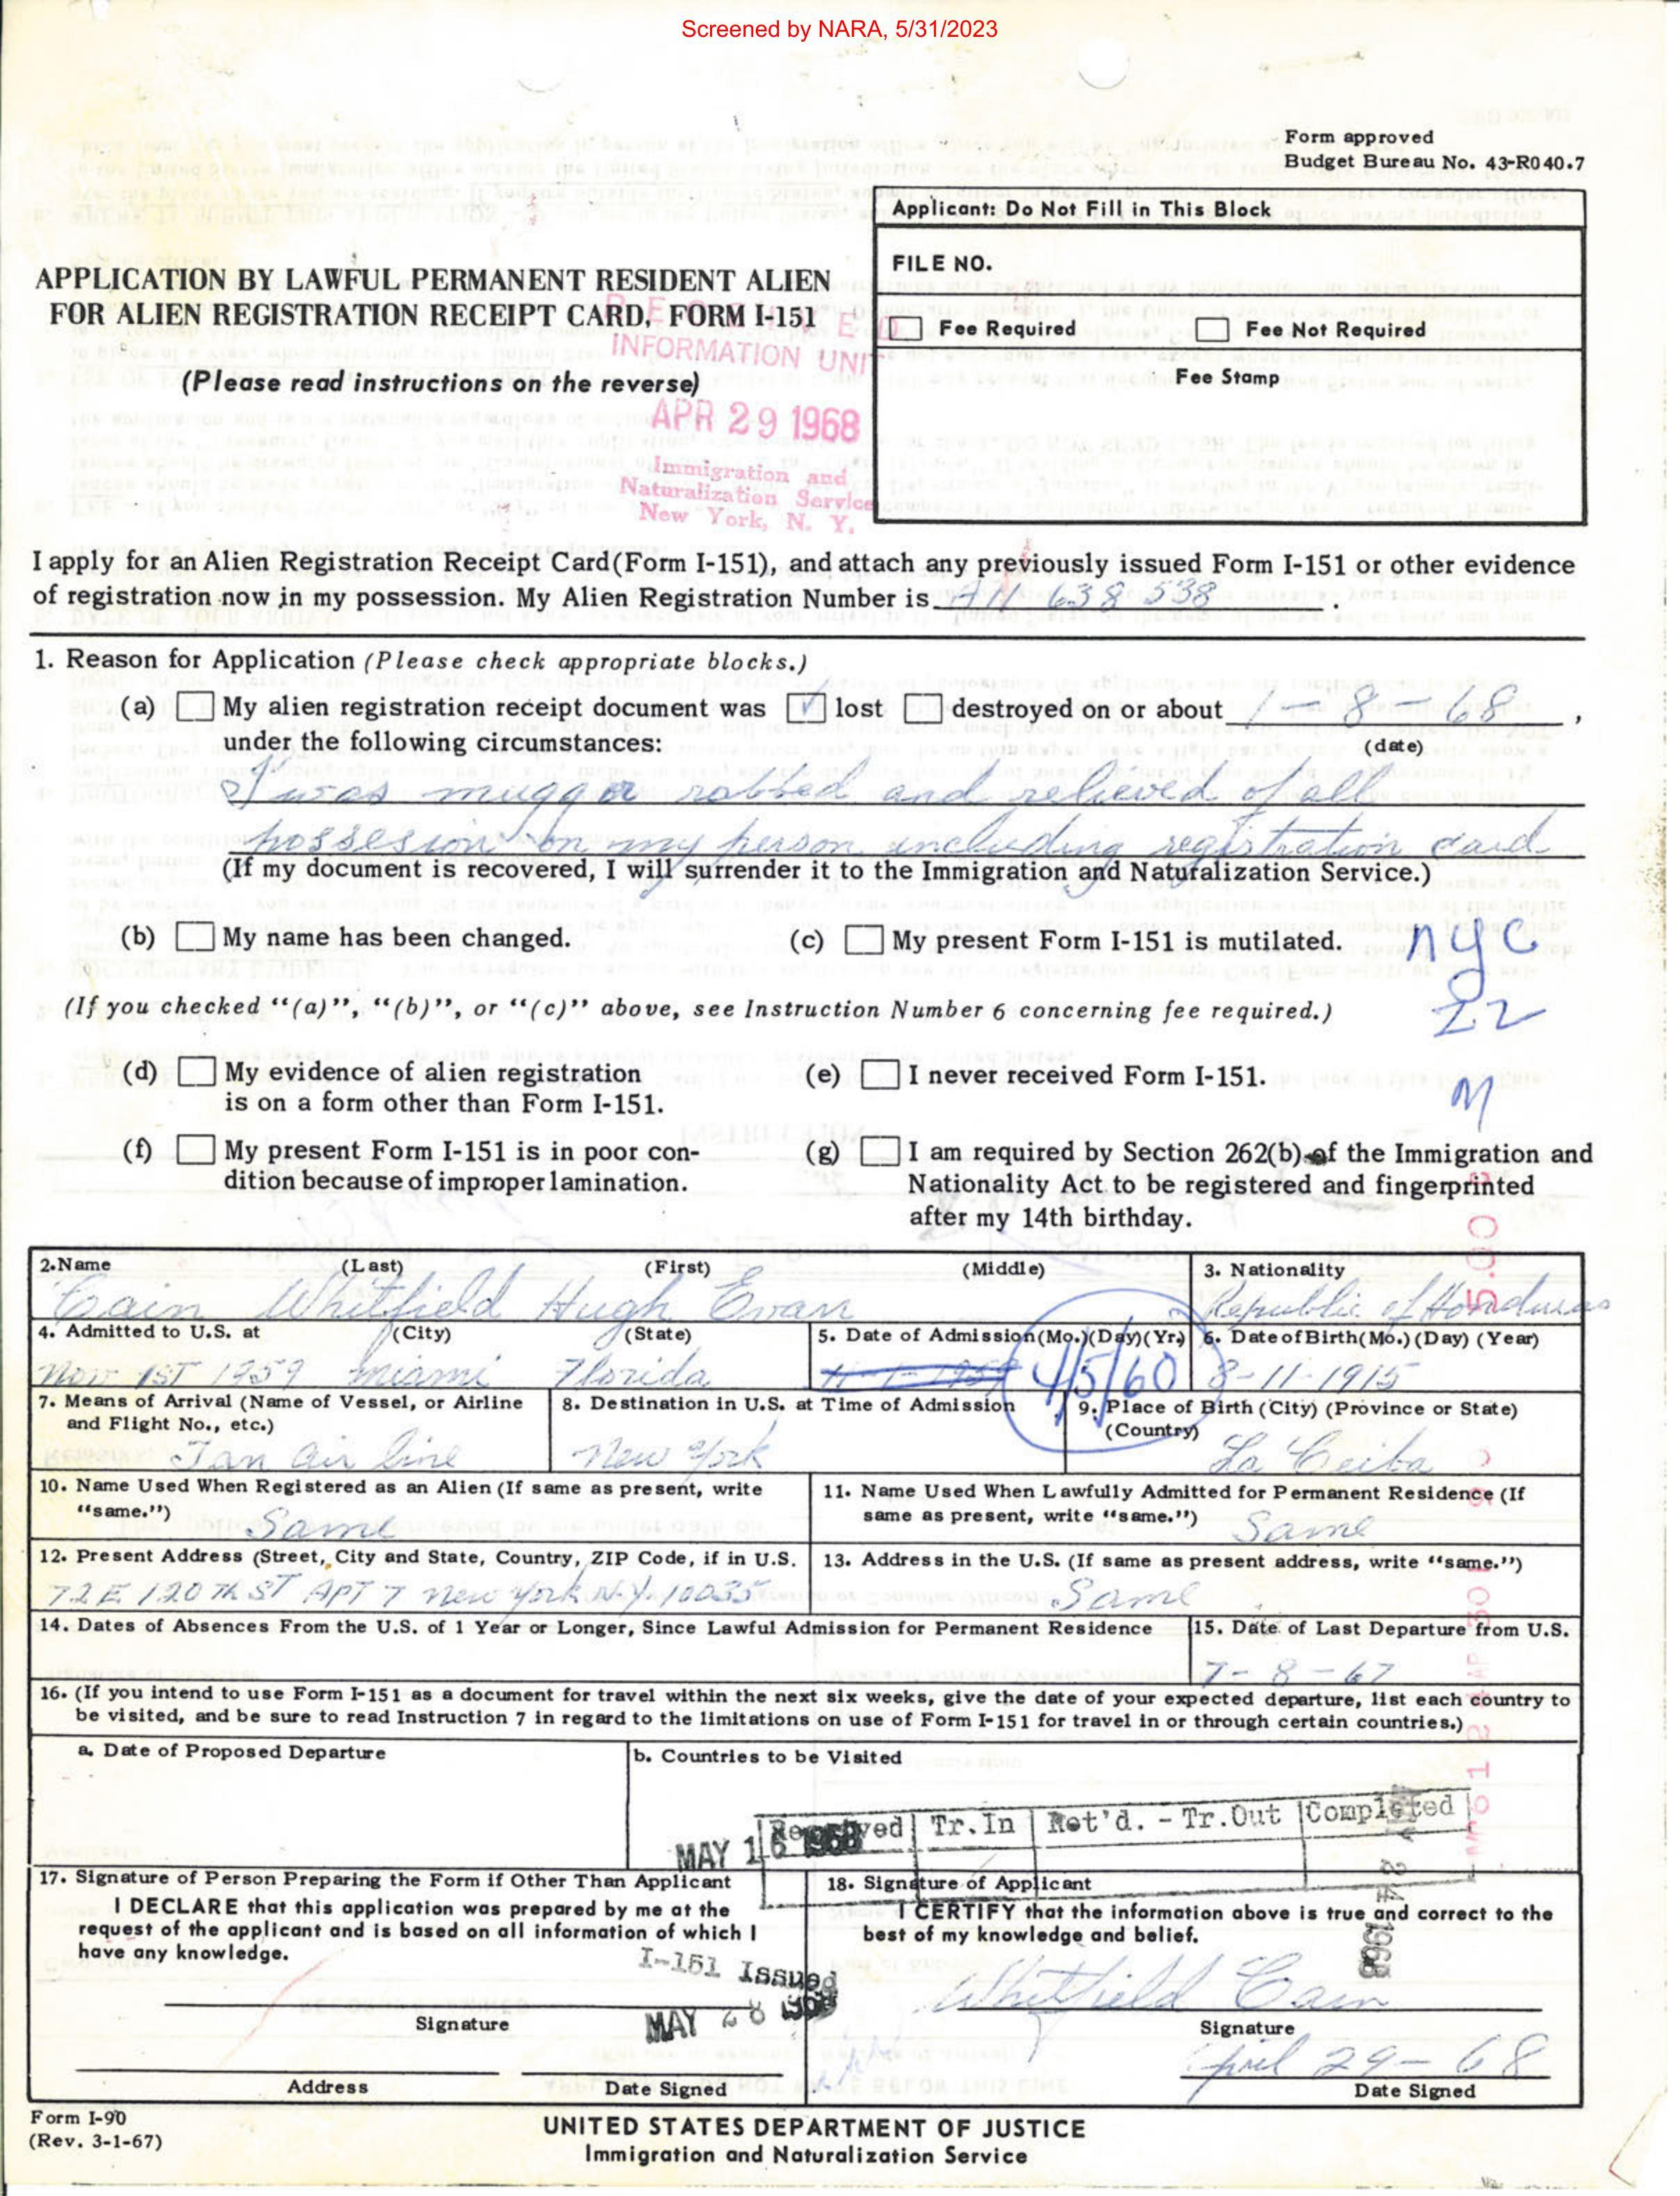 Screened by NARA, 5/31/2023
Form approved
Budget Bureau No. 43-R040.7
Applicant: Do Not Fill in This Block
FILE NO.
Fee Required
Fee Not Required
Fee Stamp
APPLICATION BY LAWFUL PERMANENT RESIDENT ALIEN
FOR ALIEN REGISTRATION RECEIPT CARD, FORM I-151
(Please read instructions on the reverse)
RECEIVED
INFORMATION UNI
APR 29 1968
Immigration and
Naturalization Service
New York, N. Y.
I apply for an Alien Registration Receipt Card (Form I-151), and attach any previously issued Form I-151 or other evidence
of registration now in my possession. My Alien Registration Number is A11 638 538.
1. Reason for Application (Please check appropriate blocks.)
(a) My alien registration receipt document was lost destroyed on or about 1-8 68,
under the following circumstances: (date)
I was mugg robbed and relieved of all
possesion on my person including registration card
(If my document is recovered, I will surrender it to the Immigration and Naturalization Service.)
(b) My name has been changed. (c) My present Form I-151 is mutilated.
nyc
(If you checked "(a)", "(b)", or "(c)" above, see Instruction Number 6 concerning fee required.)
22
(d) My evidence of alien registration
is on a form other than Form I-151.
(e) I never received Form I-151.
M
(f) My present Form I-151 is in poor con-
dition because of improper lamination.
(g) I am required by Section 262(b) of the Immigration and
Nationality Act to be registered and fingerprinted
after my 14th birthday.
2. Name (Last) (First) (Middle)
Cain Whitfield Hugh Evan
3. Nationality
Republic of Honduras
4. Admitted to U.S. at (City) (State)
Nov 1ST 1959 miami Florida
5. Date of Admission (Mo.) (Day) (Yr.)
11-1-1959 4/5/60
6. Date of Birth (Mo.) (Day) (Year)
8-11-1915
7. Means of Arrival (Name of Vessel, or Airline
and Flight No., etc.)
Tan air line
8. Destination in U.S. at Time of Admission
New York
9. Place of Birth (City) (Province or State)
(Country)
La Ceiba
10. Name Used When Registered as an Alien (If same as present, write
"same.")
Same
11. Name Used When Lawfully Admitted for Permanent Residence (If
same as present, write "same.")
Same
12. Present Address (Street, City and State, Country, ZIP Code, if in U.S.
72 E 120 Th ST APT 7 New York N.Y. 10035
13. Address in the U.S. (If same as present address, write "same.")
Same
14. Dates of Absences From the U.S. of 1 Year or Longer, Since Lawful Admission for Permanent Residence
15. Date of Last Departure from U.S.
7-8-67
16. (If you intend to use Form I-151 as a document for travel within the next six weeks, give the date of your expected departure, list each country to
be visited, and be sure to read Instruction 7 in regard to the limitations on use of Form I-151 for travel in or through certain countries.)
a. Date of Proposed Departure
b. Countries to be Visited
Received Tr.In Ret'd. - Tr.Out Completed
MAY 16 1968
MAY 24 1968
17. Signature of Person Preparing the Form if Other Than Applicant
I DECLARE that this application was prepared by me at the
request of the applicant and is based on all information of which I
have any knowledge.
I-151 Issued
MAY 28 1968
Signature
Address Date Signed
18. Signature of Applicant
I CERTIFY that the information above is true and correct to the
best of my knowledge and belief.
Whitfield Cain
Signature
April 29-68
Date Signed
Form I-90
(Rev. 3-1-67)
UNITED STATES DEPARTMENT OF JUSTICE
Immigration and Naturalization Service